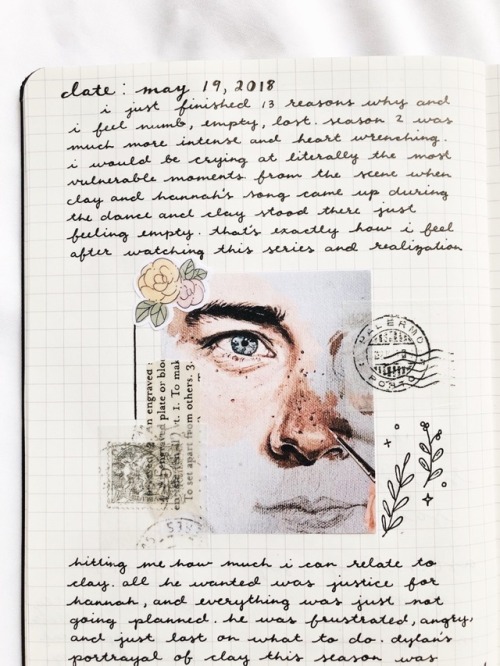 date: may 19, 2018
i just finished 13 reasons why and
i feel numb, empty, lost. season 2 was
much more intense and heart wrenching.
i would be crying at literally the most
vulnerable moments from the scene when
clay and hannah's song came up during
the dance and clay stood there just
feeling empty. that's exactly how i feel
after watching this series and realization
An engraved
plate or blo
vt. 1. To mak
To set apart from others. 3.
PALERMO
PORTO
hitting me how much i can relate to
clay. all he wanted was justice for
hannah, and everything was just not
going planned. he was frustrated, angry,
and just lost on what to do. dylan's
portrayal of clay this season was